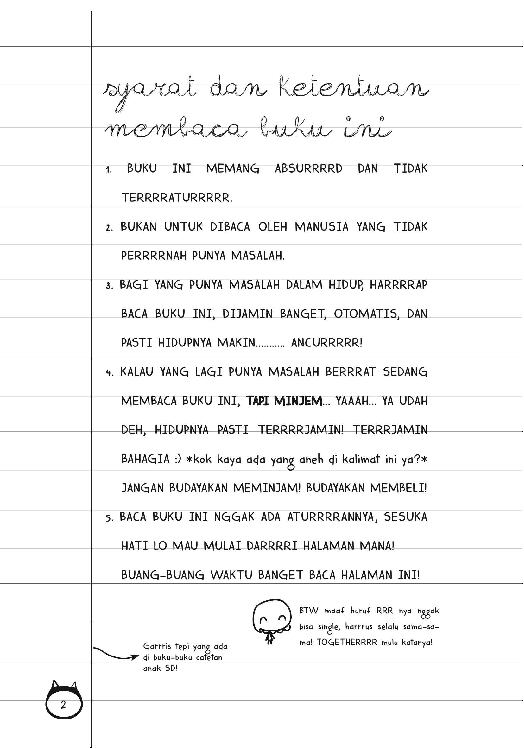 syarat dan ketentuan
membaca buku ini
1. BUKU INI MEMANG ABSURRRRD DAN TIDAK
TERRRRATURRRRR.
2. BUKAN UNTUK DIBACA OLEH MANUSIA YANG TIDAK
PERRRRNAH PUNYA MASALAH.
3. BAGI YANG PUNYA MASALAH DALAM HIDUP, HARRRRAP
BACA BUKU INI, DIJAMIN BANGET, OTOMATIS, DAN
PASTI HIDUPNYA MAKIN........... ANCURRRRR!
4. KALAU YANG LAGI PUNYA MASALAH BERRRAT SEDANG
MEMBACA BUKU INI, TAPI MINJEM... YAAAH... YA UDAH
DEH, HIDUPNYA PASTI TERRRRJAMIN! TERRRJAMIN
BAHAGIA :) *kok kaya ada yang aneh di kalimat ini ya?*
JANGAN BUDAYAKAN MEMINJAM! BUDAYAKAN MEMBELI!
5. BACA BUKU INI NGGAK ADA ATURRRRANNYA, SESUKA
HATI LO MAU MULAI DARRRRI HALAMAN MANA!
BUANG-BUANG WAKTU BANGET BACA HALAMAN INI!
BTW maaf huruf RRR nya nggak
bisa single, harrrus selalu sama-sa-
ma! TOGETHERRRR mulu katanya!
Garrris tepi yang ada
di buku-buku catetan
anak SD!
2